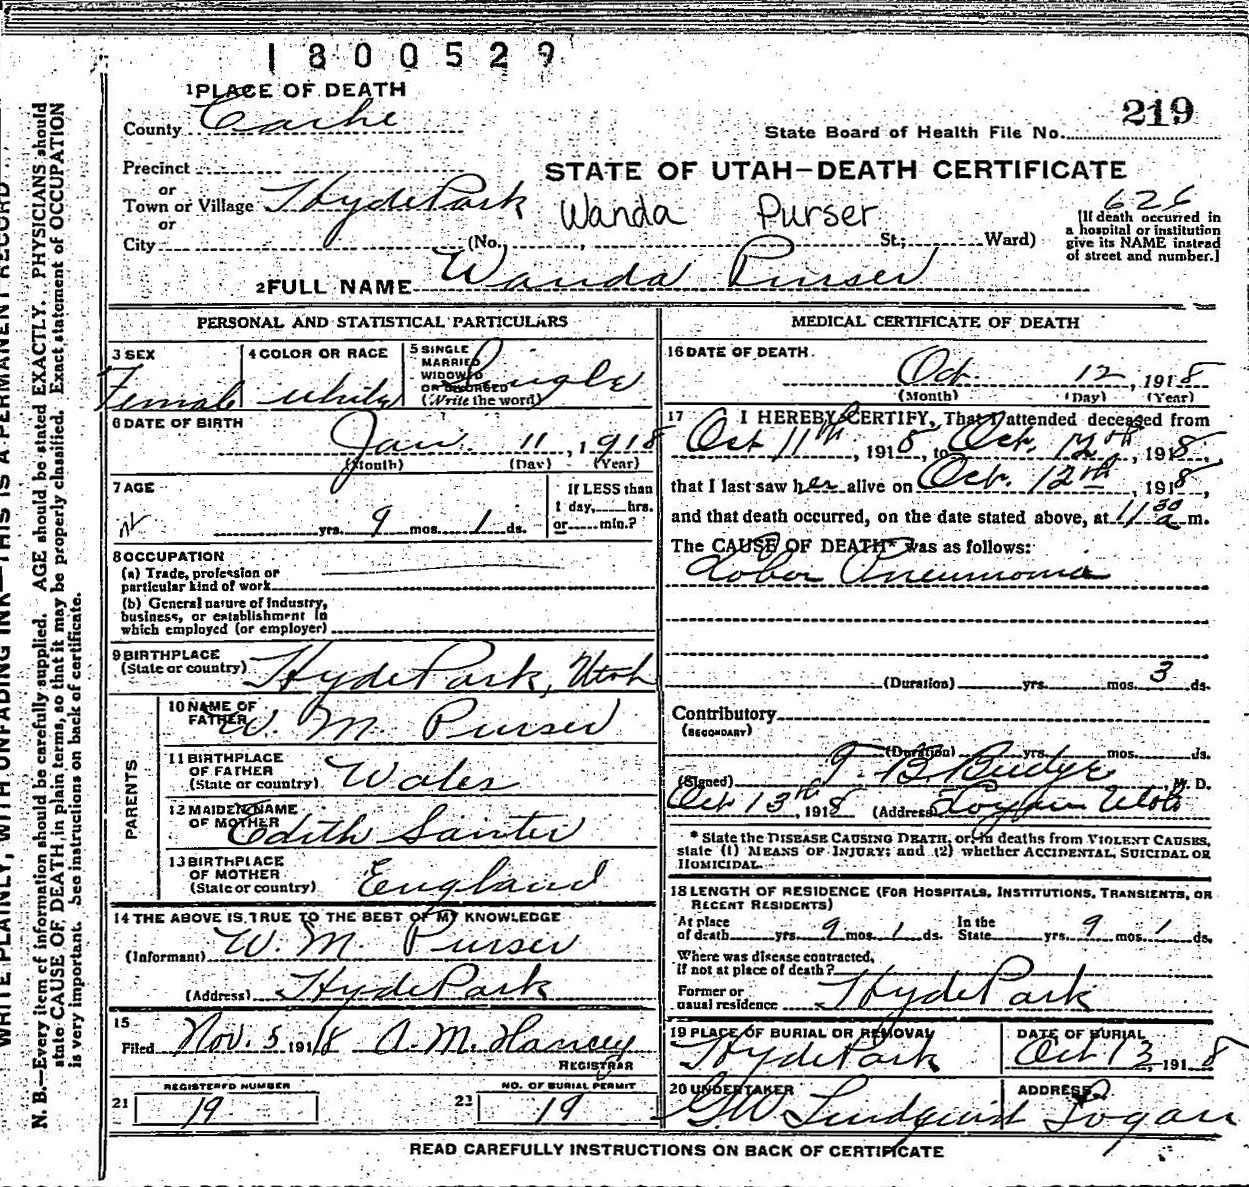 1800529
1 PLACE OF DEATH
County Cache
219
State Board of Health File No.
Precinct
STATE OF UTAH—DEATH CERTIFICATE
or
Town or Village Hyde Park
Wanda Purser
626
or
City (No. , St.; Ward)
[If death occurred in
a hospital or institution
give its NAME instead
of street and number.]
2 FULL NAME Wanda Purser
PERSONAL AND STATISTICAL PARTICULARS
3 SEX
Female
4 COLOR OR RACE
White
5 SINGLE
MARRIED
WIDOWED
OR DIVORCED
(Write the word)
Single
6 DATE OF BIRTH
Jan. 11, 1918
(Month) (Day) (Year)
7 AGE
yrs. 9 mos. 1 ds.
If LESS than
1 day, hrs.
or min.?
8 OCCUPATION
(a) Trade, profession or
particular kind of work
(b) General nature of industry,
business, or establishment in
which employed (or employer)
9 BIRTHPLACE
(State or country) Hyde Park, Utah
PARENTS
10 NAME OF
FATHER W. M. Purser
11 BIRTHPLACE
OF FATHER
(State or country) Wales
12 MAIDEN NAME
OF MOTHER Edith Sainter
13 BIRTHPLACE
OF MOTHER
(State or country) England
14 THE ABOVE IS TRUE TO THE BEST OF MY KNOWLEDGE
(Informant) W. M. Purser
(Address) Hyde Park
15
Filed Nov. 5 1918 A. M. Hancey
REGISTRAR
REGISTERED NUMBER
21 19
NO. OF BURIAL PERMIT
22 19
MEDICAL CERTIFICATE OF DEATH
16 DATE OF DEATH
Oct 12, 1918
(Month) (Day) (Year)
17 I HEREBY CERTIFY, That I attended deceased from
Oct 11th, 1918, to Oct. 12th, 1918,
that I last saw her alive on Oct. 12th, 1918,
and that death occurred, on the date stated above, at 11 30 a m.
The CAUSE OF DEATH* was as follows:
Lobar Pneumonia
(Duration) yrs. mos. 3 ds.
Contributory
(SECONDARY)
(Duration) yrs. mos. ds.
(Signed) T. B. Budge M. D.
Oct 13th, 1918 (Address) Logan Utah
* State the DISEASE CAUSING DEATH, or, in deaths from VIOLENT CAUSES,
state (1) MEANS OF INJURY; and (2) whether ACCIDENTAL, SUICIDAL OR
HOMICIDAL.
18 LENGTH OF RESIDENCE (FOR HOSPITALS, INSTITUTIONS, TRANSIENTS, OR
RECENT RESIDENTS)
At place
of death yrs. 9 mos. 1 ds.
In the
State yrs. 9 mos. 1 ds.
Where was disease contracted,
if not at place of death?
Former or
usual residence Hyde Park
19 PLACE OF BURIAL OR REMOVAL
Hyde Park
DATE OF BURIAL
Oct 13, 1918
20 UNDERTAKER
G.W Lindquist
ADDRESS
Logan
READ CAREFULLY INSTRUCTIONS ON BACK OF CERTIFICATE
WRITE PLAINLY, WITH UNFADING INK—THIS IS A PERMANENT RECORD
N. B.—Every item of information should be carefully supplied. AGE should be stated EXACTLY. PHYSICIANS should
state CAUSE OF DEATH in plain terms, so that it may be properly classified. Exact statement of OCCUPATION
is very important. See instructions on back of certificate.